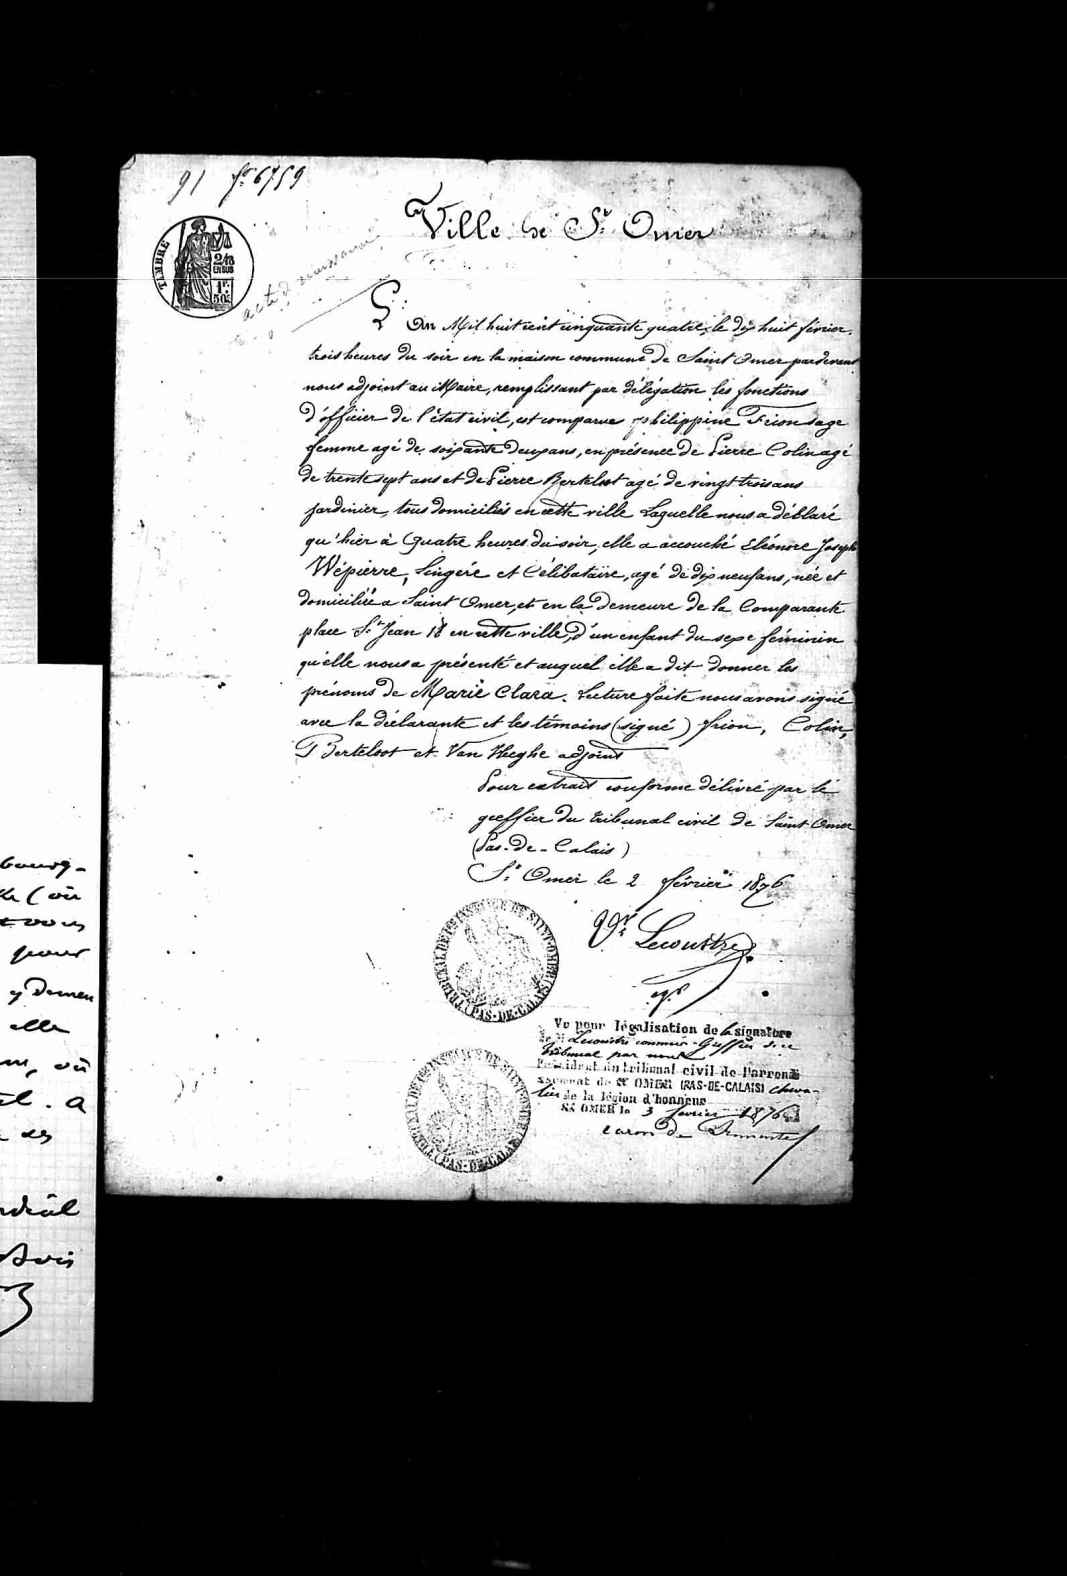 91 fo 6759
Ville de St Omer
TIMBRE
2/10
EN SUS
1F.
50c.
acte de naissance
L'an Mil huit cent cinquante quatre, le dix huit février
trois heures du soir en la maison commune de Saint Omer pardevant
nous adjoint au Maire, remplissant par délégation les fonctions
d'officier de l'état civil, est comparue philippine Frion sage
femme agé de soixante deux ans, en présence de Pierre Colin agé
de trente sept ans et de Pierre Berteloot agé de vingt trois ans
jardinier, tous domiciliés en cette ville Laquelle nous a déclaré
qu'hier à Quatre heures du soir, elle a accouché Eléonore Joseph
Wépierre, lingère et Célibataire, agé de dix neuf ans, née et
domiciliée a Saint Omer, et en la demeure de la Comparante
place St Jean 18 en cette ville, d'un enfant du sexe féminin
qu'elle nous a présenté et auquel elle a dit donner les
prénoms de Marie Clara. Lecture faite nous avons signé
avec la déclarante et les témoins (signé) frion, Colin,
P Berteloot et Van Heeghe adjoint
Pour extrait conforme délivré par le
greffier du tribunal civil de Saint Omer
(Pas-de-Calais)
St Omer le 2 février 1876
Lecoustre
TRIBUNAL DE 1re INSTANCE DE SAINT-OMER (PAS-DE-CALAIS)
Vu pour légalisation de la signature
de M Lecoustre commis-Greffier de ce
tribunal par nous
Président du tribunal civil de l'arrond
issement de St OMER (PAS-DE-CALAIS) cheva-
lier de la légion d'honneur
St OMER le 3 février 1876
TRIBUNAL DE 1re INSTANCE DE SAINT-OMER (PAS-DE-CALAIS)
bourg-
(où
vous
pour
y demeu
elle
où
a